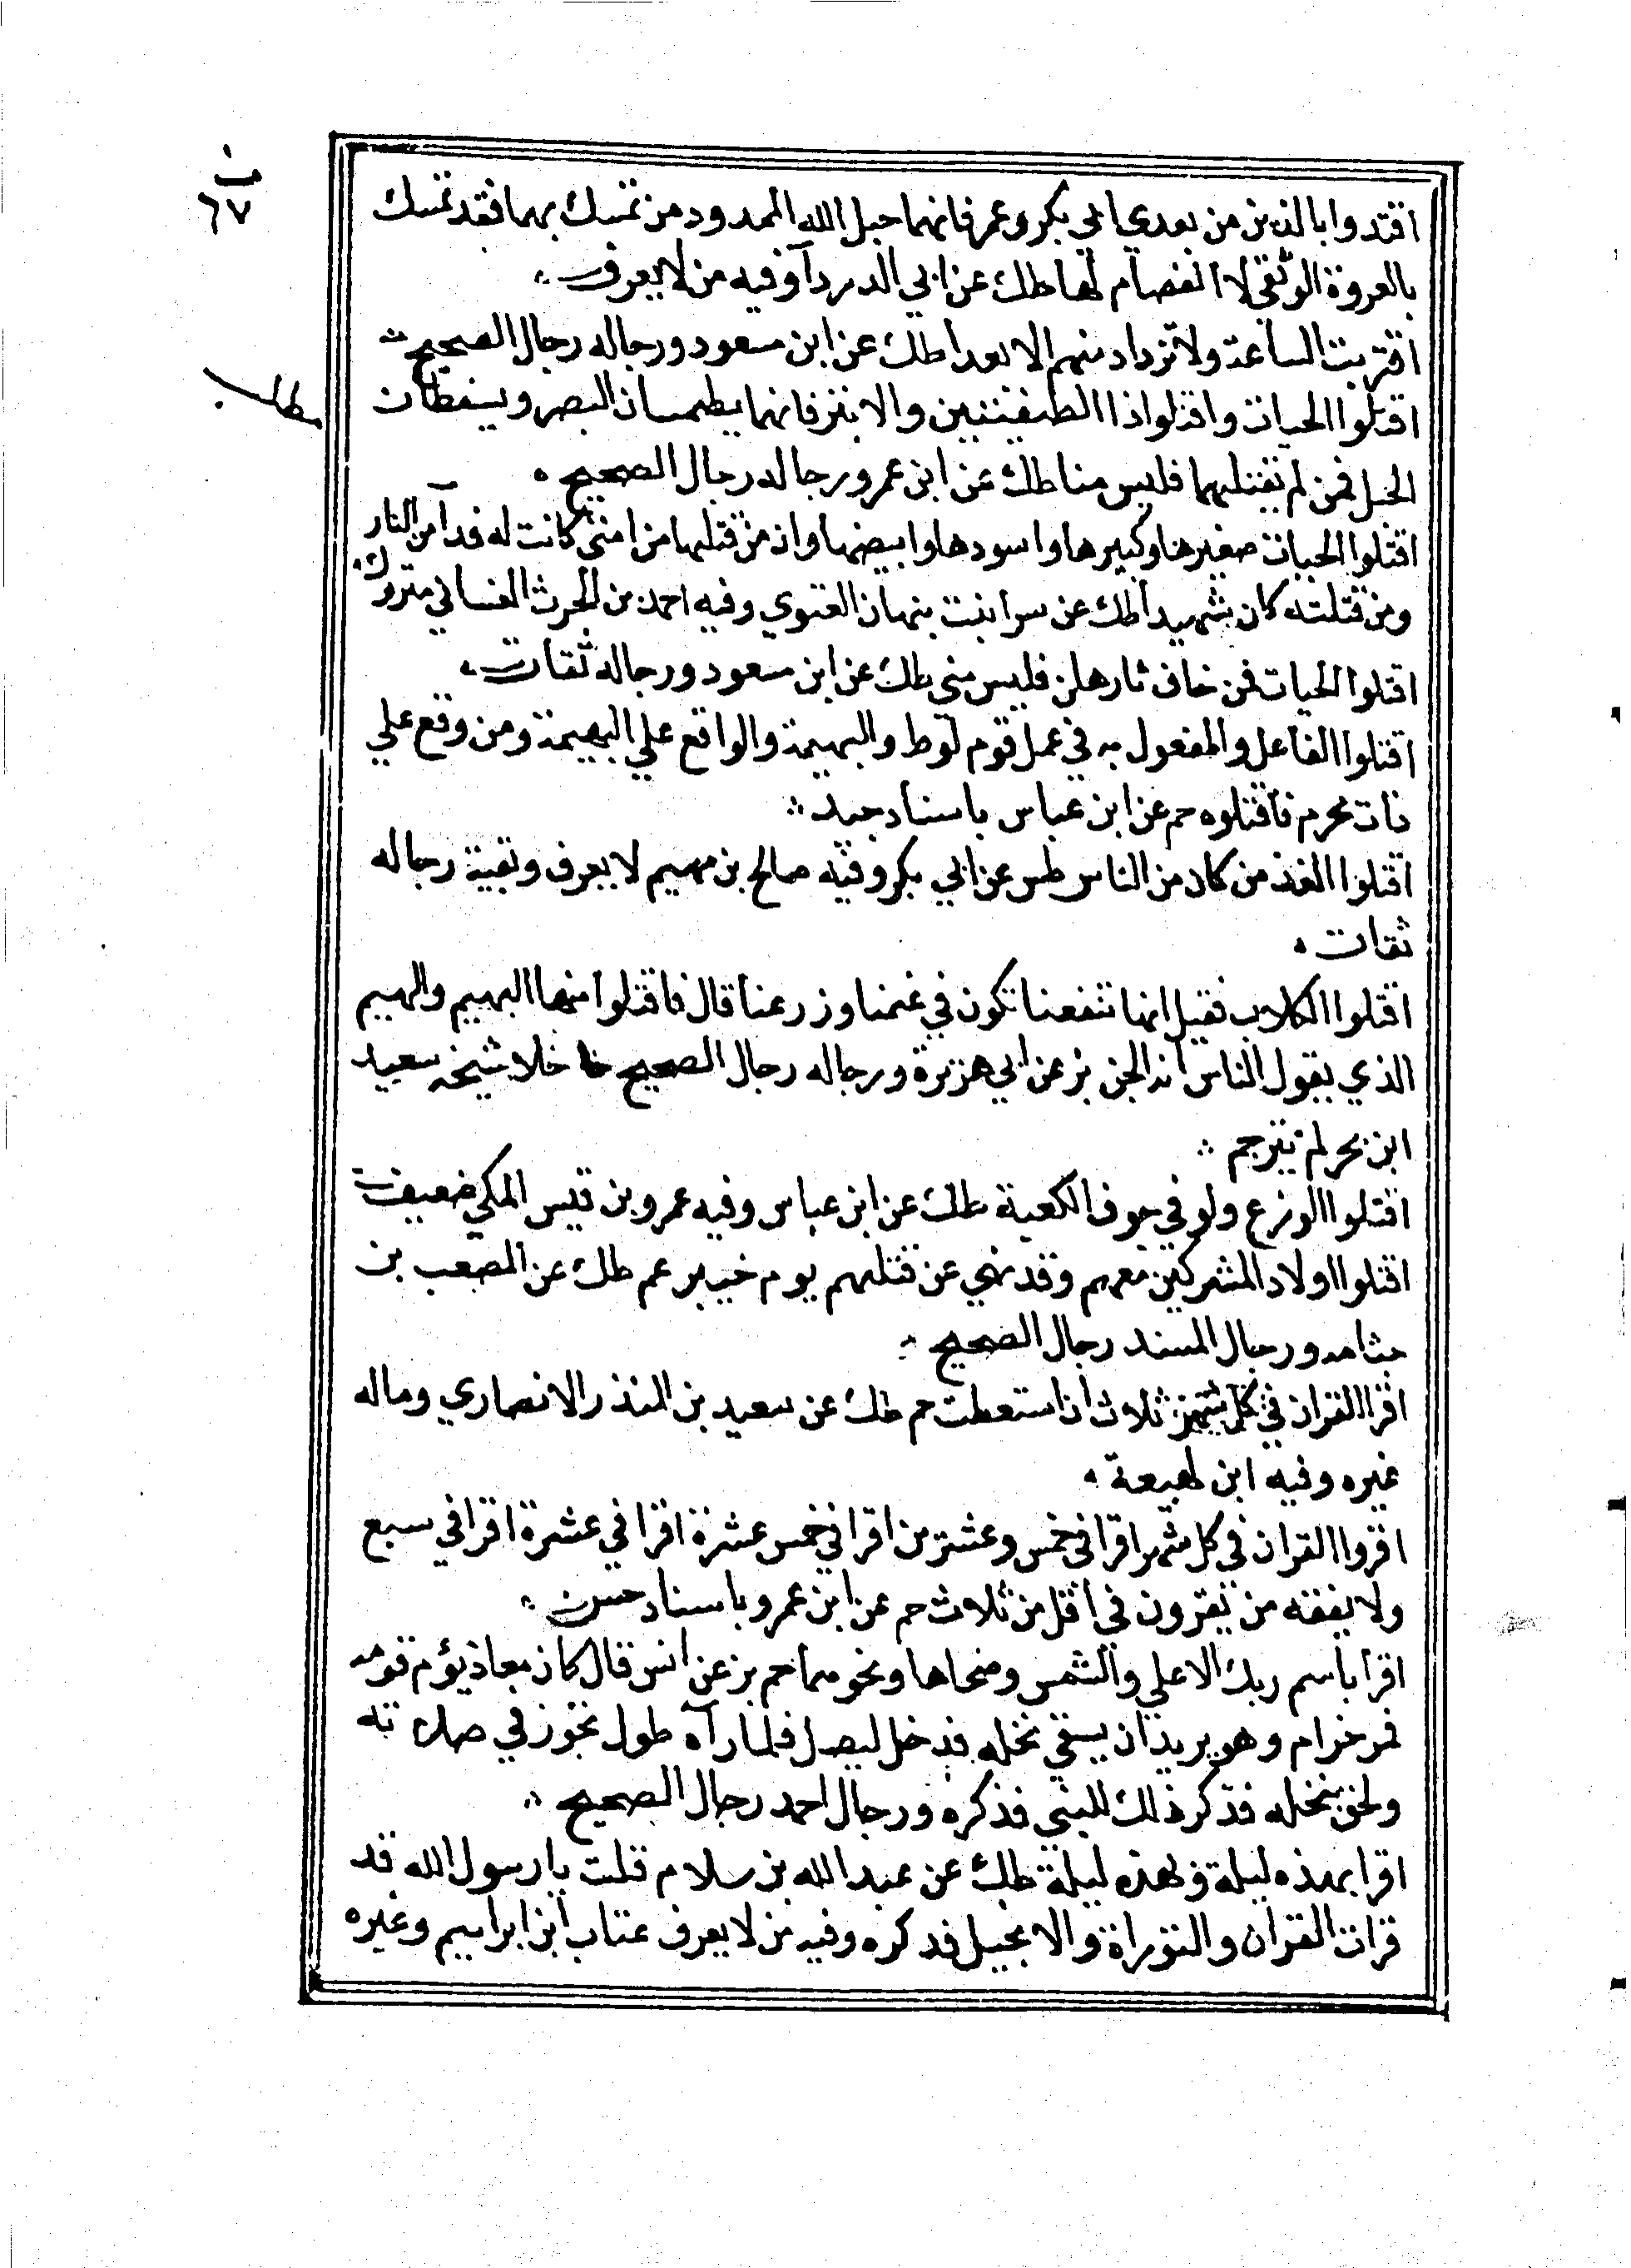 ن
٦٧
اقتدوا بالذين من بعدي ابي بكر وعمر فانهما حبل الله الممدود من تمسك بهما فقد تمسك
بالعروة الوثقى لا انفصام لها طك عن ابي الدرداَ وفيه من لا يعرف
اقتربت الساعة ولا تزداد منهم الا بعدا طك عن ابن مسعود ورجاله رجال الصحيح
مطلب
اقتلوا الحيات واقتلوا ذا الطفيتين والابتر فانهما يطمسان البصر ويسقطان
الحبل فمن لم يقتلهما فليس منا طك عن ابن عمر ورجاله رجال الصحيح
اقتلوا الحيات صغيرها وكبيرها واسودها وابيضها وان من قتلها من امتي كانت له فدآ من النار
ومن قتلته كان شهيدا طك عن سرا بنت بنهان الغنوي وفيه احمد بن الحرث الغساني متروك
اقتلوا الحيات فمن خاف ثارهن فليس مني طك عن ابن مسعود ورجاله ثقات
اقتلوا الفاعل والمفعول به في عمل قوم لوط والبهيمة والواقع علي البهيمة ومن وقع علي
ذات محرم فاقتلوه حم عن ابن عباس باسناد جيد
اقتلوا الفذ من كان من الناس طس عن ابي بكر وفيه صالح بن مهيم لا يعرف وبقية رجاله
ثقات
اقتلوا الكلاب فقيل انها تنفعنا تكون في غنمنا وزرعنا قال فاقتلوا منها البهيم والبهيم
الذي يقول الناس انه الجن بز عن ابي هريرة ورجاله رجال الصحيح خلا شيخه سعيد
ابن بحر لم يترجم
اقتلوا الوزغ ولو في جوف الكعبة طك عن ابن عباس وفيه عمرو بن قيس المكي ضعيف
اقتلوا اولاد المشركين معهم وقد نهي عن قتلهم يوم خيبر عم طك عن المصعب بن
جثامه ورجال المسند رجال الصحيح
اقرا القران في كل ثلاث ان استعطت حم طك عن سعيد بن المنذر الانصاري وماله
غيره وفيه ابن لهيعة
اقروا القران في كل شهر اقرا في خمس وعشرين اقرا في خمس عشرة اقرا في عشرة اقرا في سبع
ولا يفقه من يقرون في اقل من ثلاث حم عن ابن عمرو باسناد حسن
اقرا باسم ربك الاعلي والشمس وضحاها ونحوهما حم بز عن انس قال كان معاذ يؤم قومه
فمر حزام وهو يريد ان يسقي نخله فدخل ليصل فلما رآه طول تجوز في صلاته
ولحق بنخله فذكر ذلك للنبي فذكره ورجال احمد رجال الصحيح
اقرا بهذه ليلة وبهذه ليلة طك عن عبد الله بن سلام قلت يا رسول الله قد
قرات القران والتوراة والانجيل فدكره وفيه من لا يعرف عتاب ابن ابراهيم وغيره